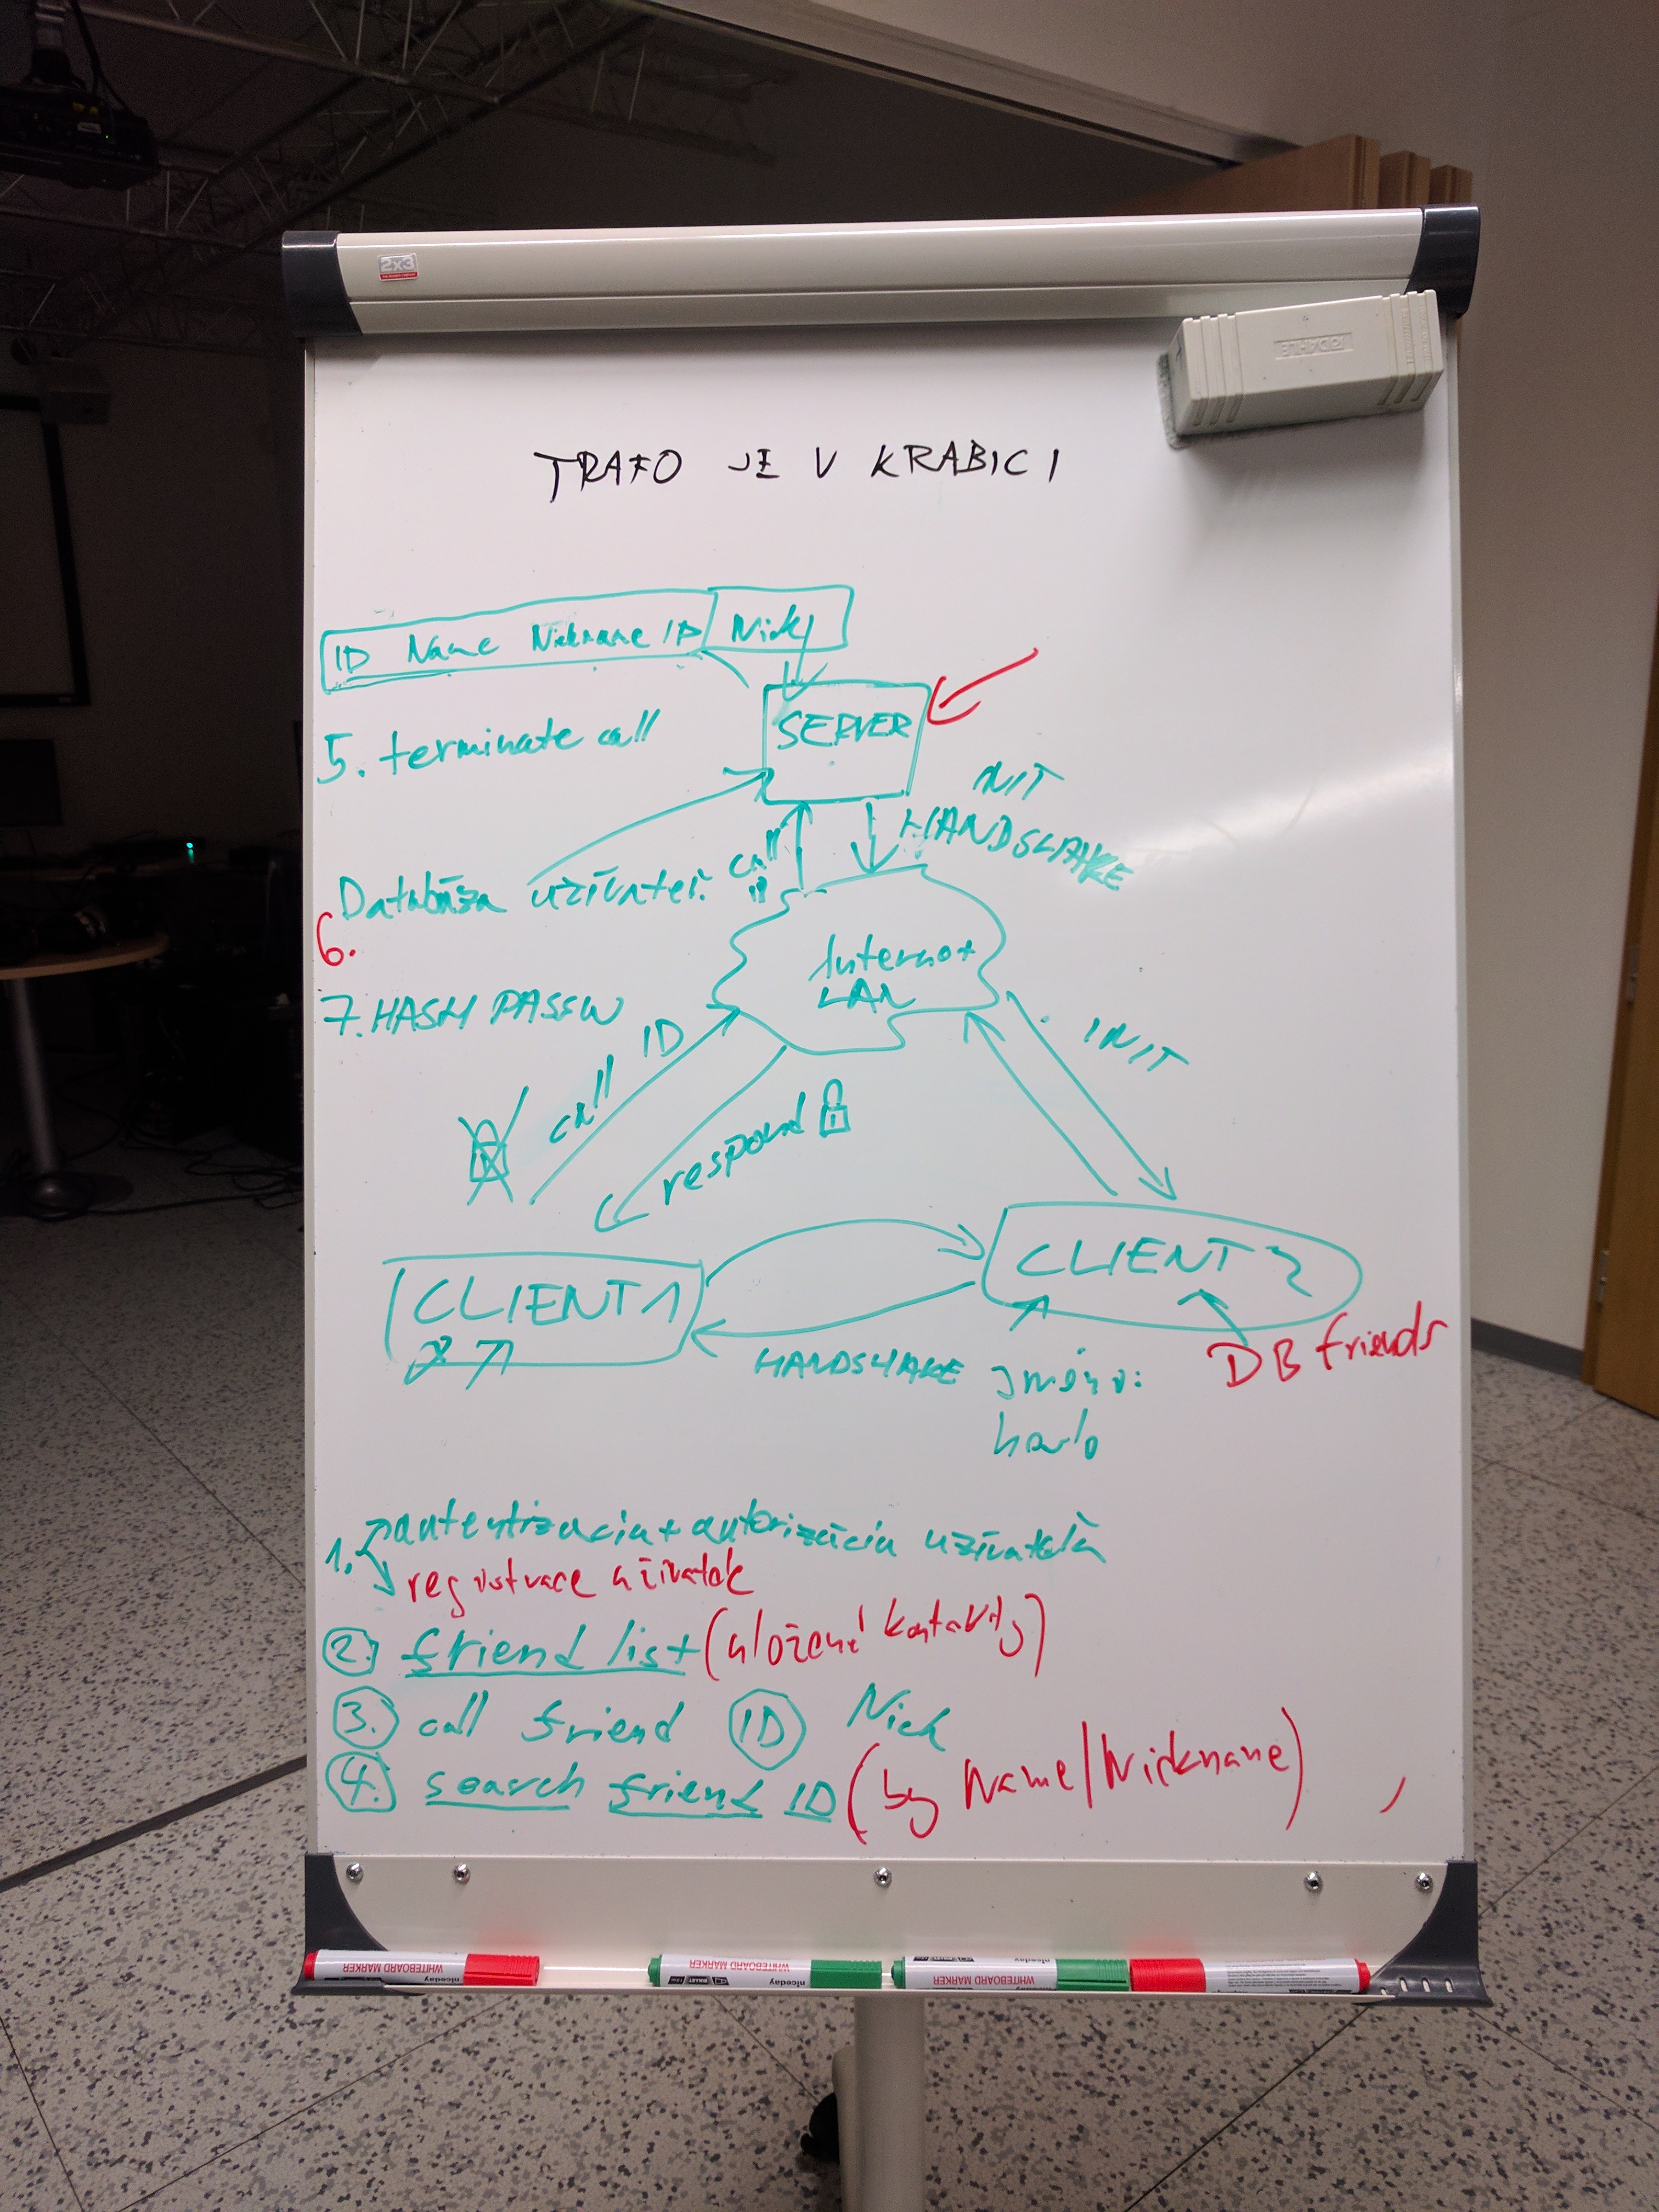 2x3
DAHLE
TRAFO JE V KRABICI
ID Name Nickname ID Nick
SERVER
5. terminate call
INIT
HANDSHAKE
call
ID
6. Databáza uživateľ.
Internet
LAN
7. HASH PASSW
call ID
INIT
respond
CLIENT 1
CLIENT 2
HANDSHAKE
jméno:
heslo
DB friends
1. autentizacia + autorizácia uživateľa
registrace uživatele
2. friend list (uložené kontakty)
3. call friend ID Nick
4. search friend ID (by Name/Nickname)
WHITEBOARD MARKER niceday
WHITEBOARD MARKER niceday
WHITEBOARD MARKER niceday